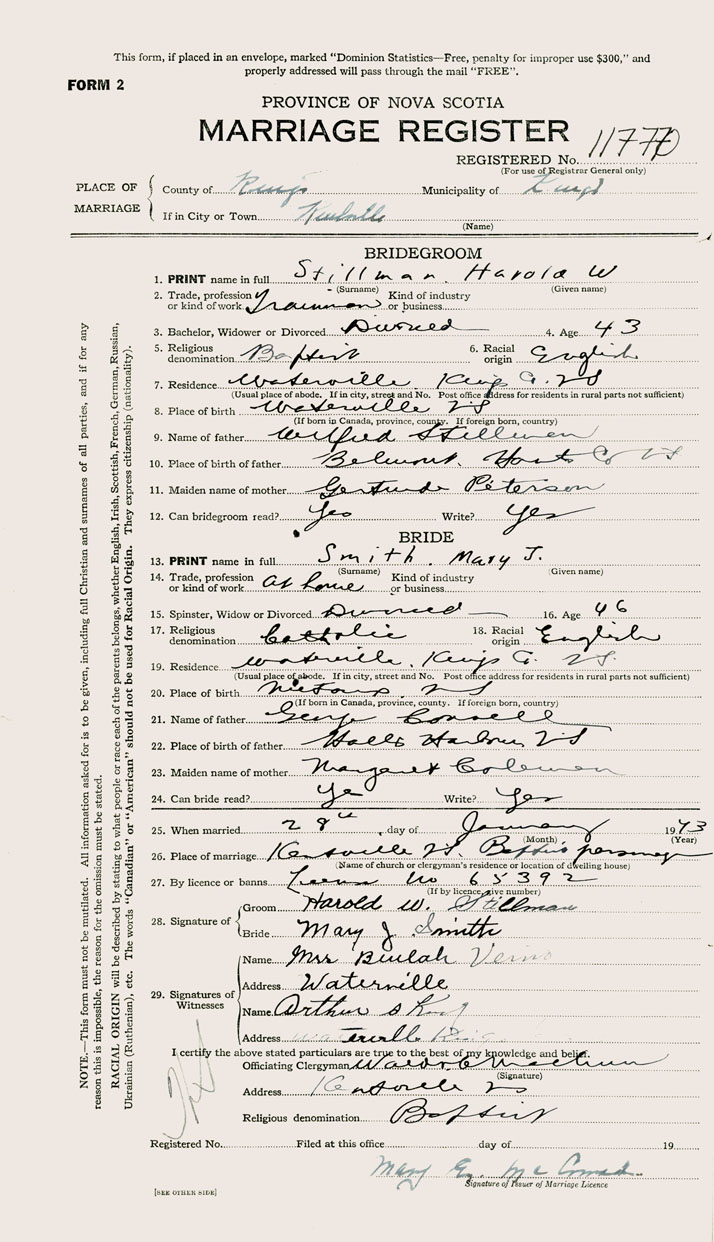 This form, if placed in an envelope, marked "Dominion Statistics—Free, penalty for improper use $300," and
properly addressed will pass through the mail "FREE".
FORM 2
PROVINCE OF NOVA SCOTIA
MARRIAGE REGISTER
REGISTERED No. 11770
(For use of Registrar General only)
PLACE OF MARRIAGE
County of Kings Municipality of Kings
If in City or Town Kentville
(Name)
BRIDEGROOM
1. PRINT name in full Stillman, Harold W
(Surname) (Given name)
2. Trade, profession or kind of work Trainman Kind of industry or business
3. Bachelor, Widower or Divorced Divorced 4. Age 43
5. Religious denomination Baptist 6. Racial origin English
7. Residence Waterville Kings Co. NS
(Usual place of abode. If in city, street and No. Post office address for residents in rural parts not sufficient)
8. Place of birth Waterville NS
(If born in Canada, province, county. If foreign born, country)
9. Name of father Wilfred Stillman
10. Place of birth of father Belmont, Hants Co NS
11. Maiden name of mother Gertrude Peterson
12. Can bridegroom read? Yes Write? Yes
BRIDE
13. PRINT name in full Smith, Mary J.
(Surname) (Given name)
14. Trade, profession or kind of work At home Kind of industry or business
15. Spinster, Widow or Divorced Divorced 16. Age 46
17. Religious denomination Catholic 18. Racial origin English
19. Residence Waterville, Kings Co. NS.
(Usual place of abode. If in city, street and No. Post office address for residents in rural parts not sufficient)
20. Place of birth NS
(If born in Canada, province, county. If foreign born, country)
21. Name of father George
22. Place of birth of father Halls Harbour NS
23. Maiden name of mother Margaret Coleman
24. Can bride read? Ye Write? Yes
25. When married 28th day of January 1943
(Month) (Year)
26. Place of marriage Kentville NS. Baptist parsonage
(Name of church or clergyman's residence or location of dwelling house)
27. By licence or banns License No 65392
(If by licence, give number)
28. Signature of
Groom Harold W. Stillman
Bride Mary J Smith
29. Signatures of Witnesses
Name Mrs Beulah
Address Waterville
Name Arthur S
Address Waterville
I certify the above stated particulars are true to the best of my knowledge and belief.
Officiating Clergyman
(Signature)
Address Kentville NS
Religious denomination Baptist
Registered No. Filed at this office day of 19
Mary E.
Signature of Issuer of Marriage Licence
[SEE OTHER SIDE]
NOTE.—This form must not be mutilated. All information asked for is to be given, including full Christian and surnames of all parties, and if for any
reason this is impossible, the reason for the omission must be stated.
RACIAL ORIGIN will be described by stating to what people or race each of the parents belongs, whether English, Irish, Scottish, French, German, Russian,
Ukrainian (Ruthenian), etc. The words "Canadian" or "American" should not be used for Racial Origin. They express citizenship (nationality).